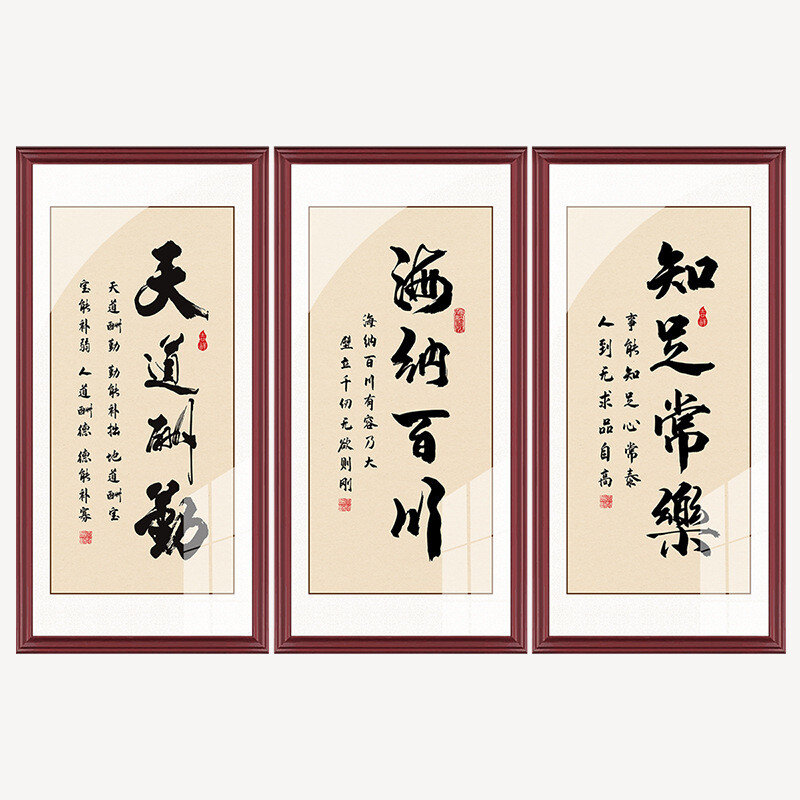 天道酬勤
天道酬勤 勤能补拙 地道酬宝
宝能补弱 人道酬德 德能补寡
海纳百川
海纳百川有容乃大
壁立千仞无欲则刚
知足常樂
事能知足心常泰
人到无求品自高